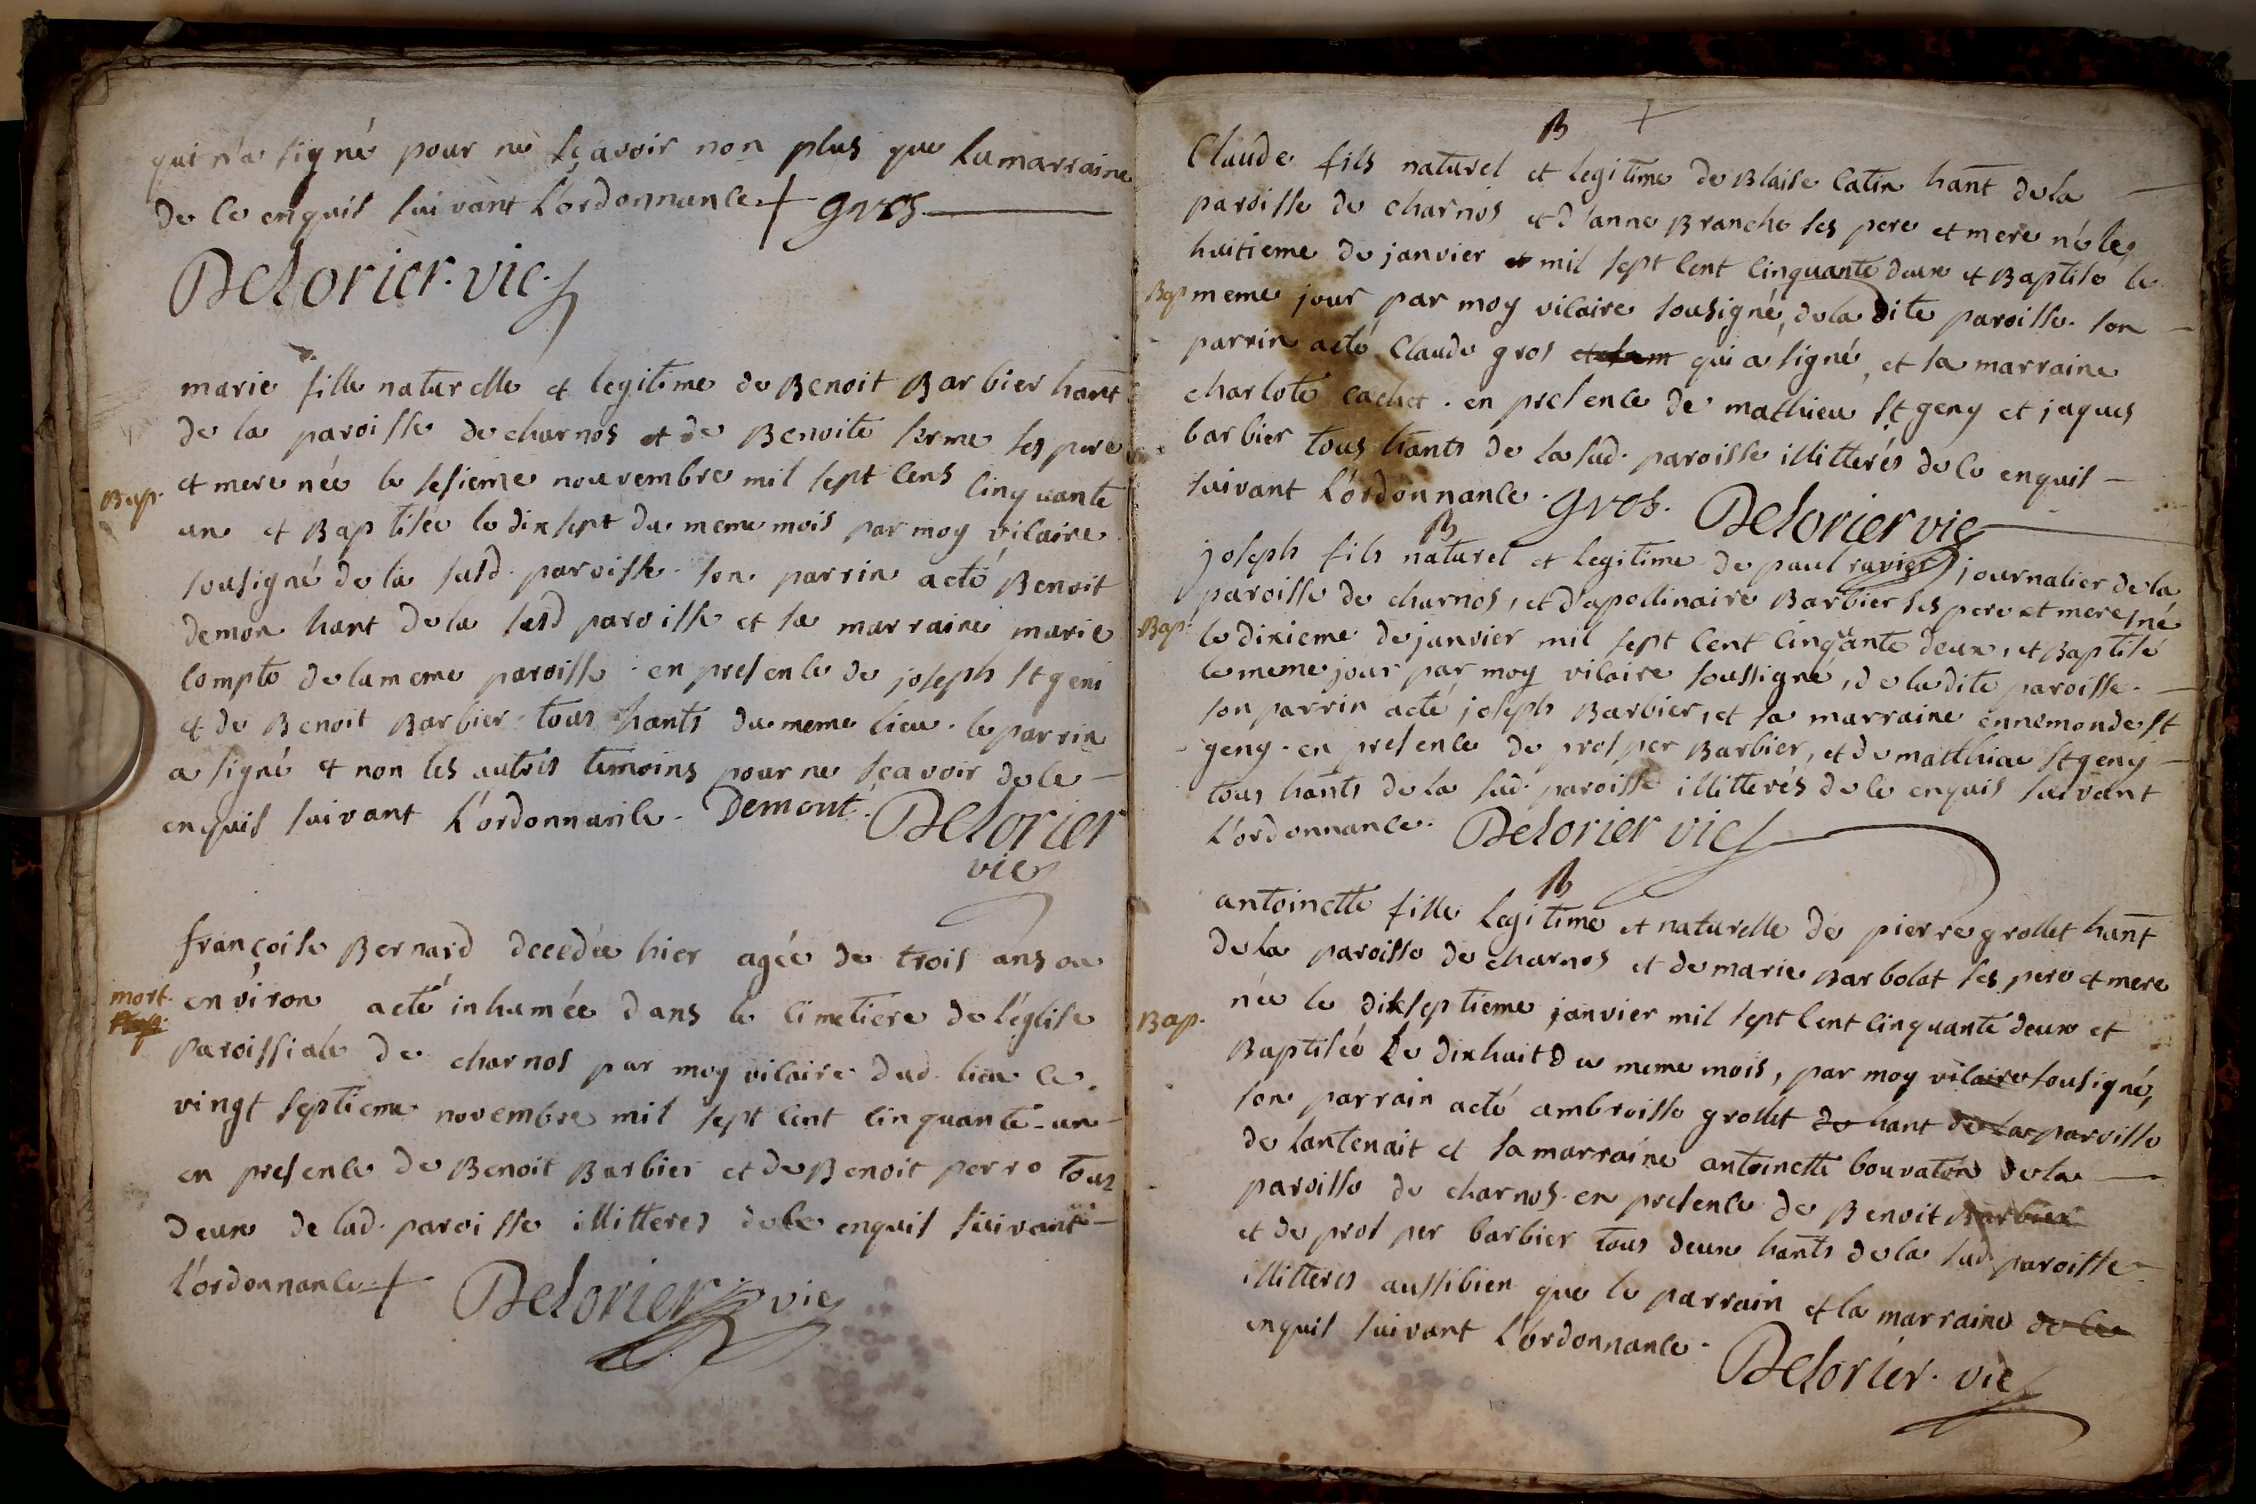 qui n'a signé pour ne sçavoir non plus que la marraine
de ce enquis suivant l'ordonnance + gros
Delorier. vic.
marie fille naturelle et legitime de Benoit Barbier hant
de la paroisse de charnos et de Benoite serme ses pere
Bap.
et mere née le sesieme nouvembre mil sept cens cinquante
un et Baptisée le dix sept du meme mois par moy vicaire
sousigné de la susd. paroisse. son parrin a eté Benoit
demon hant de la susd paroisse et sa marraine marie
compte de la meme paroisse. en presence de joseph st geni
et de Benoit Barbier. tous hants du meme lieu. le parrin
a signé et non les autres temoins pour ne sçavoir de ce
enquis suivant l'ordonnance. Demont. Delorier
vic
françoise Bernard decedée hier agée de trois ans ou
mort.
environ a eté inhumée dans le cimetiere de l'église
paroissiale de charnos par moy vicaire dud. lieu ce.
vingt septieme novembre mil sept cent cinquante-un
en presence de Benoit Barbier et de Benoit perro tous
deux de lad. paroisse illitteres de ce enquis suivant
l'ordonnance + Delorier vic
B
Claude fils naturel et legitime de Blaise catin hant de la
paroisse de charnos et d'anne Branche ses pere et mere né le
huitieme de janvier et mil sept cent cinquante deux et Baptisé le
Bap
meme jour par moy vicaire sousigné, de la dite paroisse. son
parrin a eté Claude gros qui a signé, et sa marraine
charlote cachet. en presence de mathieu st geny et jaques
barbier tous hants de la sud. paroisse illitterés de ce enquis
suivant l'ordonnance. gros. Delorier vic
B
joseph fils naturel et legitime de paul ravier journalier de la
paroisse de charnos, et d'apollinaire Barbier ses pere et mere né
Bap.
le dixieme de janvier mil sept cent cinquante deux, et Baptisé
le meme jour par moy vicaire soussigné, de la dite paroisse.
son parrin a eté joseph Barbier, et sa marraine ennemonde st
geny. en presence de prosper Barbier, et de matthieu st geny
tous hants de la sud. paroisse illitterés de ce enquis suivant
l'ordonnance. Delorier vic
B
antoinette fille legitime et naturelle de pierre grollet hant
de la paroisse de charnos et de marie Barbolat ses pere et mere
Bap.
née le dixseptieme janvier mil sept cent cinquante deux et
Baptisée le dixhuit du meme mois, par moy vicaire sousigné,
son parrain a eté ambroisse grollet de hant de la paroisse
de lantenait et sa marraine antoinette bouvaton de la
paroisse de charnos. en presence de Benoit Barbier
et de prosper barbier tous deux hants de la sud paroisse
illitteres aussibien que le parrain et la marraine de ce
enquis suivant l'ordonnance.
Delorier. vic